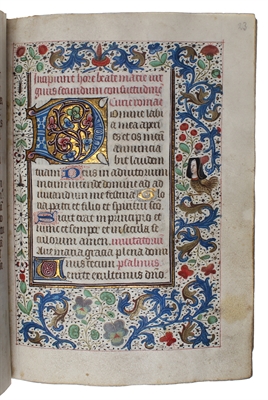 Incipiunt hore beate marie vir
ginis secundum consuetudinem
Curie romane
Domine labi
a mea aperi
es et os meū
annuncia
bit laudem
tuam Deus in adiutorium
meum intende domine ad ad
iuvandum me festina Glo
ria patri et filio et spiritui san
Sicut erat in principio et
nunc et semper et in secula se
culorum amen invitatoriū
Ave maria gracia plena domi
nus tecum psalmus
Venite exultemus dno